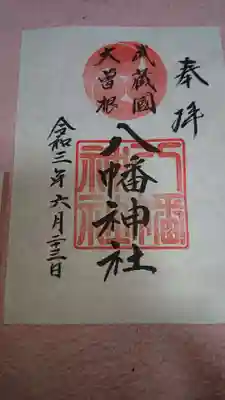 奉拝
武蔵國
大曽根
八幡神社
令和三年六月二十三日